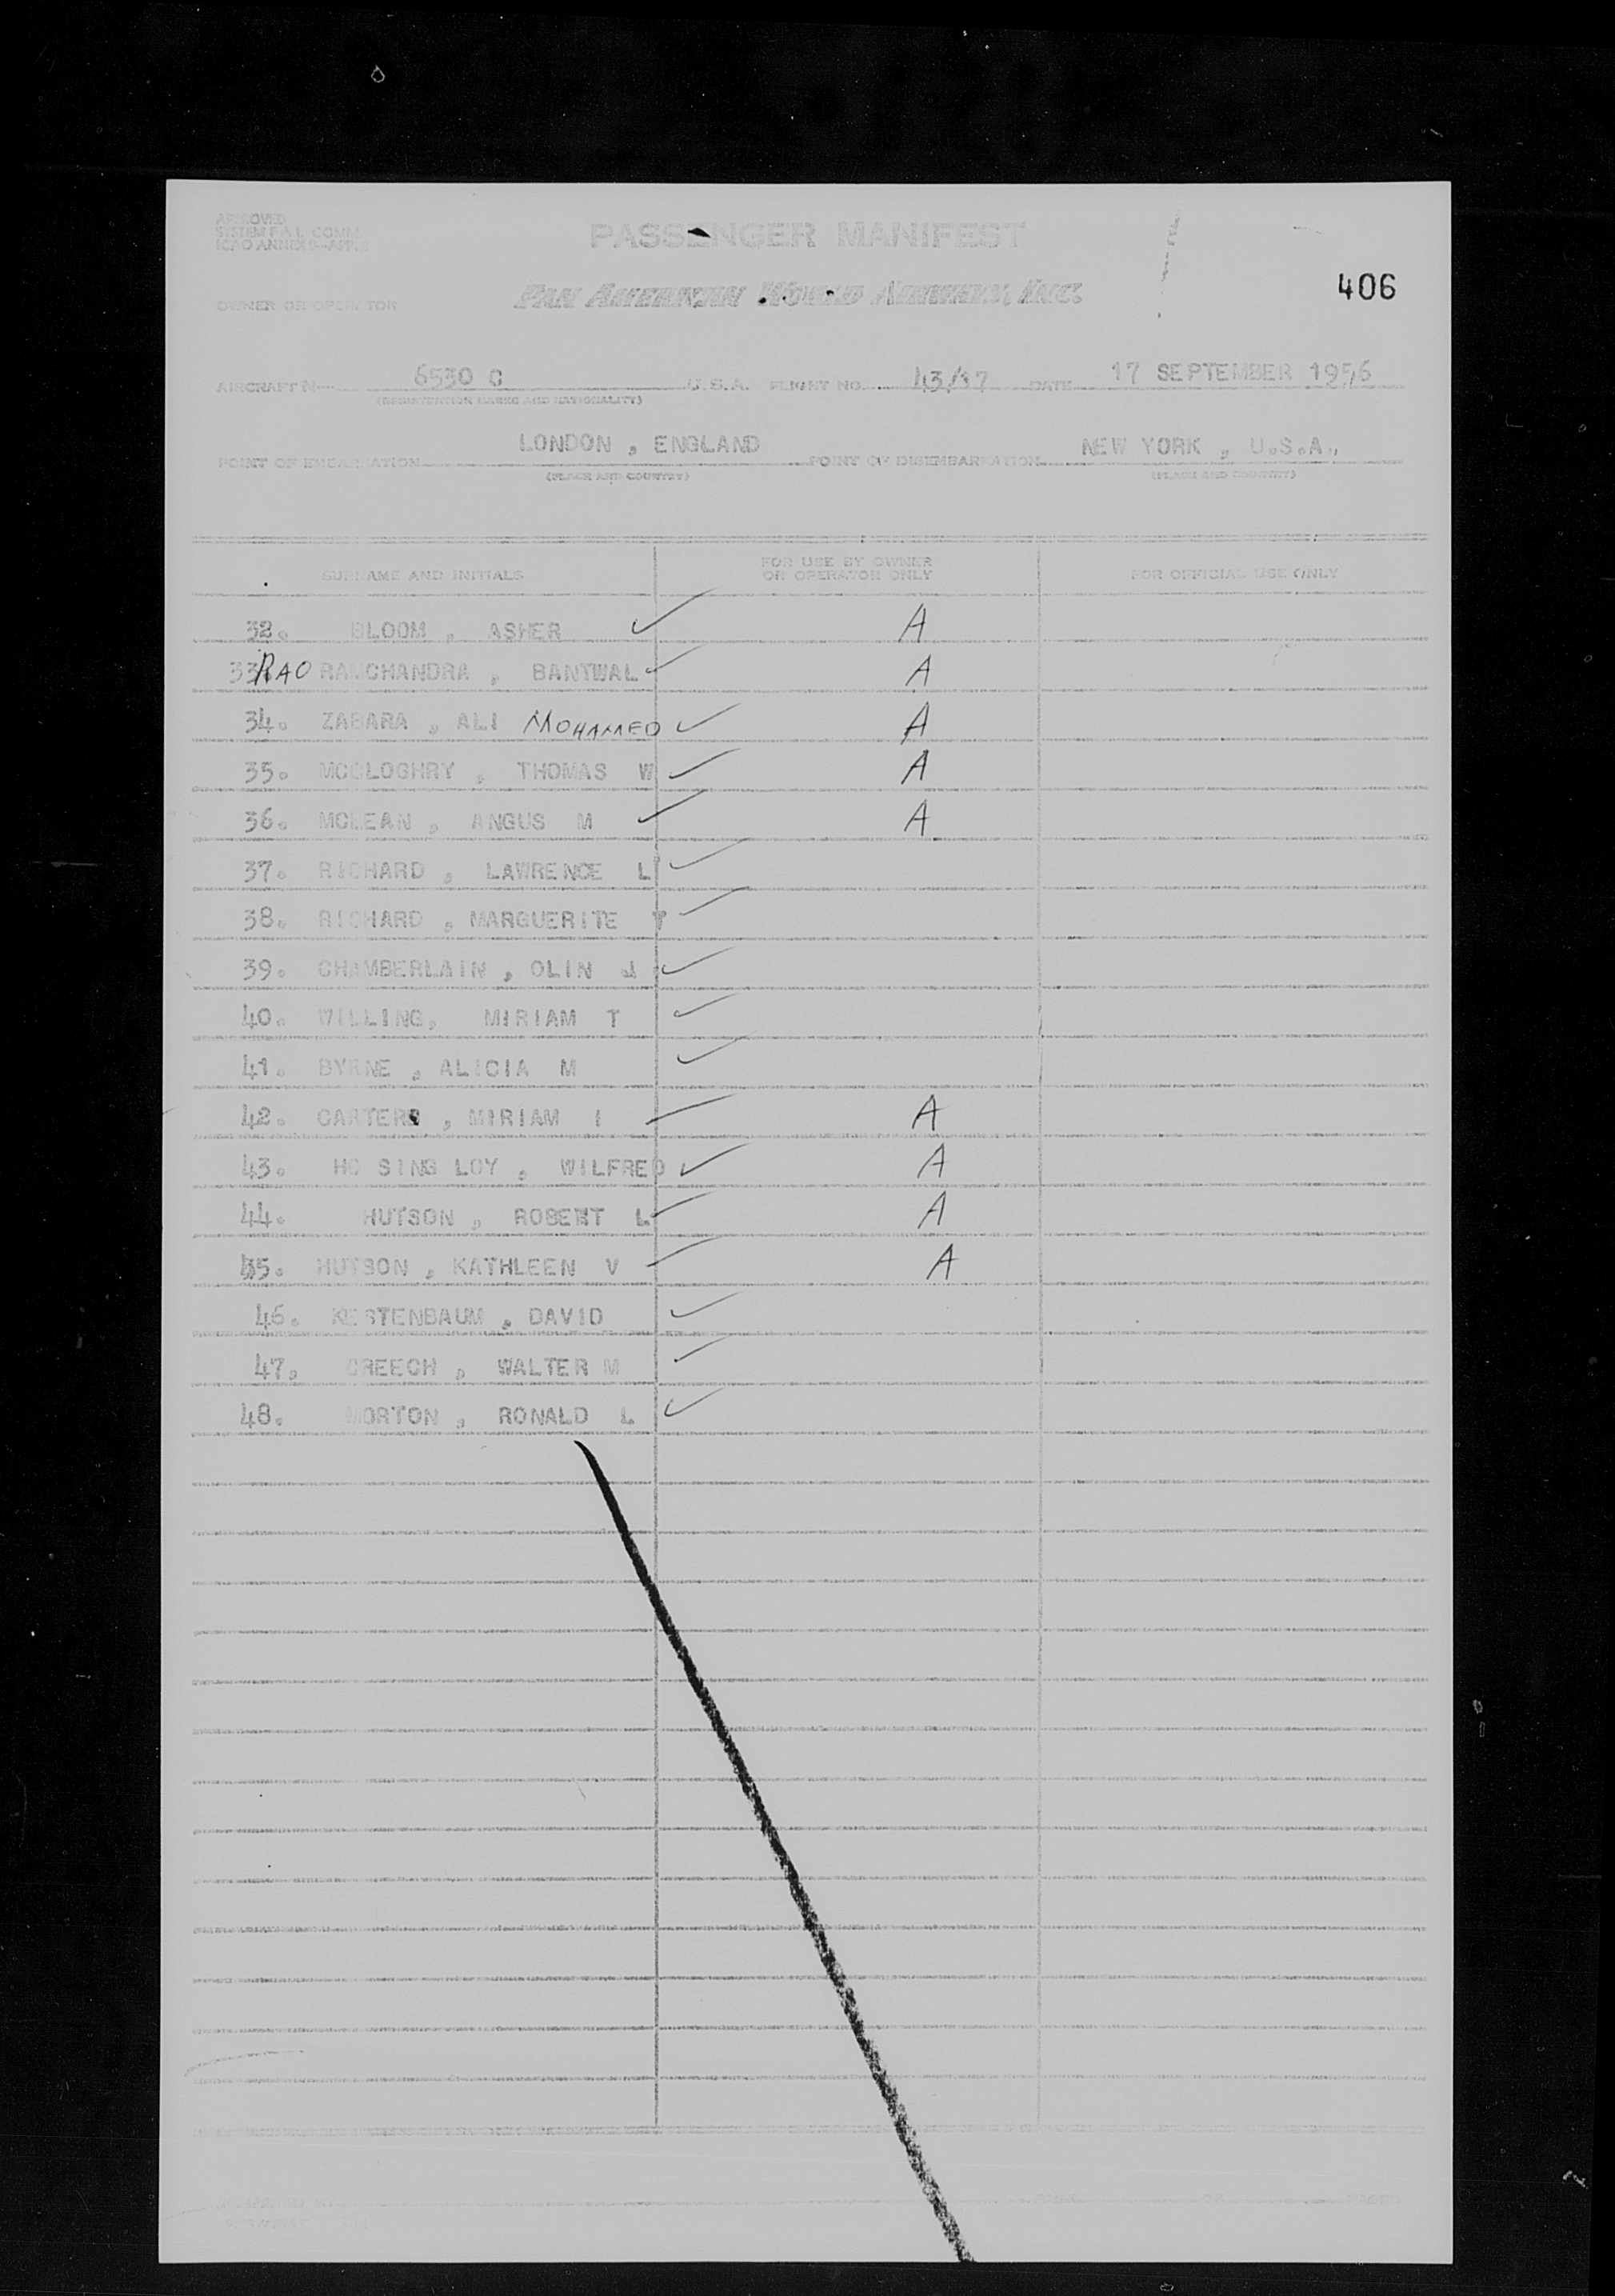 APPROVED
SYSTEM F A L COMM.
ICAO ANNEX 9-APP.
PASSENGER MANIFEST
406
OWNER OR OPERATOR
PAN AMERICAN WORLD AIRWAYS, INC.
AIRCRAFT N 6530 C U.S.A. FLIGHT NO. 43/17 DATE 17 SEPTEMBER 1956
(REGISTRATION MARKS AND NATIONALITY)
POINT OF EMBARKATION LONDON , ENGLAND POINT OF DISEMBARKATION NEW YORK , U.S.A.,
(PLACE AND COUNTRY) (PLACE AND COUNTRY)
SURNAME AND INITIALS FOR USE BY OWNER OR OPERATOR ONLY FOR OFFICIAL USE ONLY
32. BLOOM , ASHER ✓ A
33. RAO RAMCHANDRA , BANTWAL ✓ A
34. ZABARA , ALI MOHAMED ✓ A
35. MCCLOGHRY , THOMAS W ✓ A
36. MCLEAN , ANGUS M ✓ A
37. RICHARD , LAWRENCE L ✓
38. RICHARD , MARGUERITE T ✓
39. CHAMBERLAIN , OLIN J ✓
40. WILLING, MIRIAM T ✓
41. BYRNE , ALICIA M ✓
42. CARTER , MIRIAM I ✓ A
43. HO SING LOY , WILFRED ✓ A
44. HUTSON , ROBERT L ✓ A
45. HUTSON , KATHLEEN V ✓ A
46. KESTENBAUM , DAVID ✓
47, CREECH , WALTER M ✓
48. MORTON , RONALD L ✓